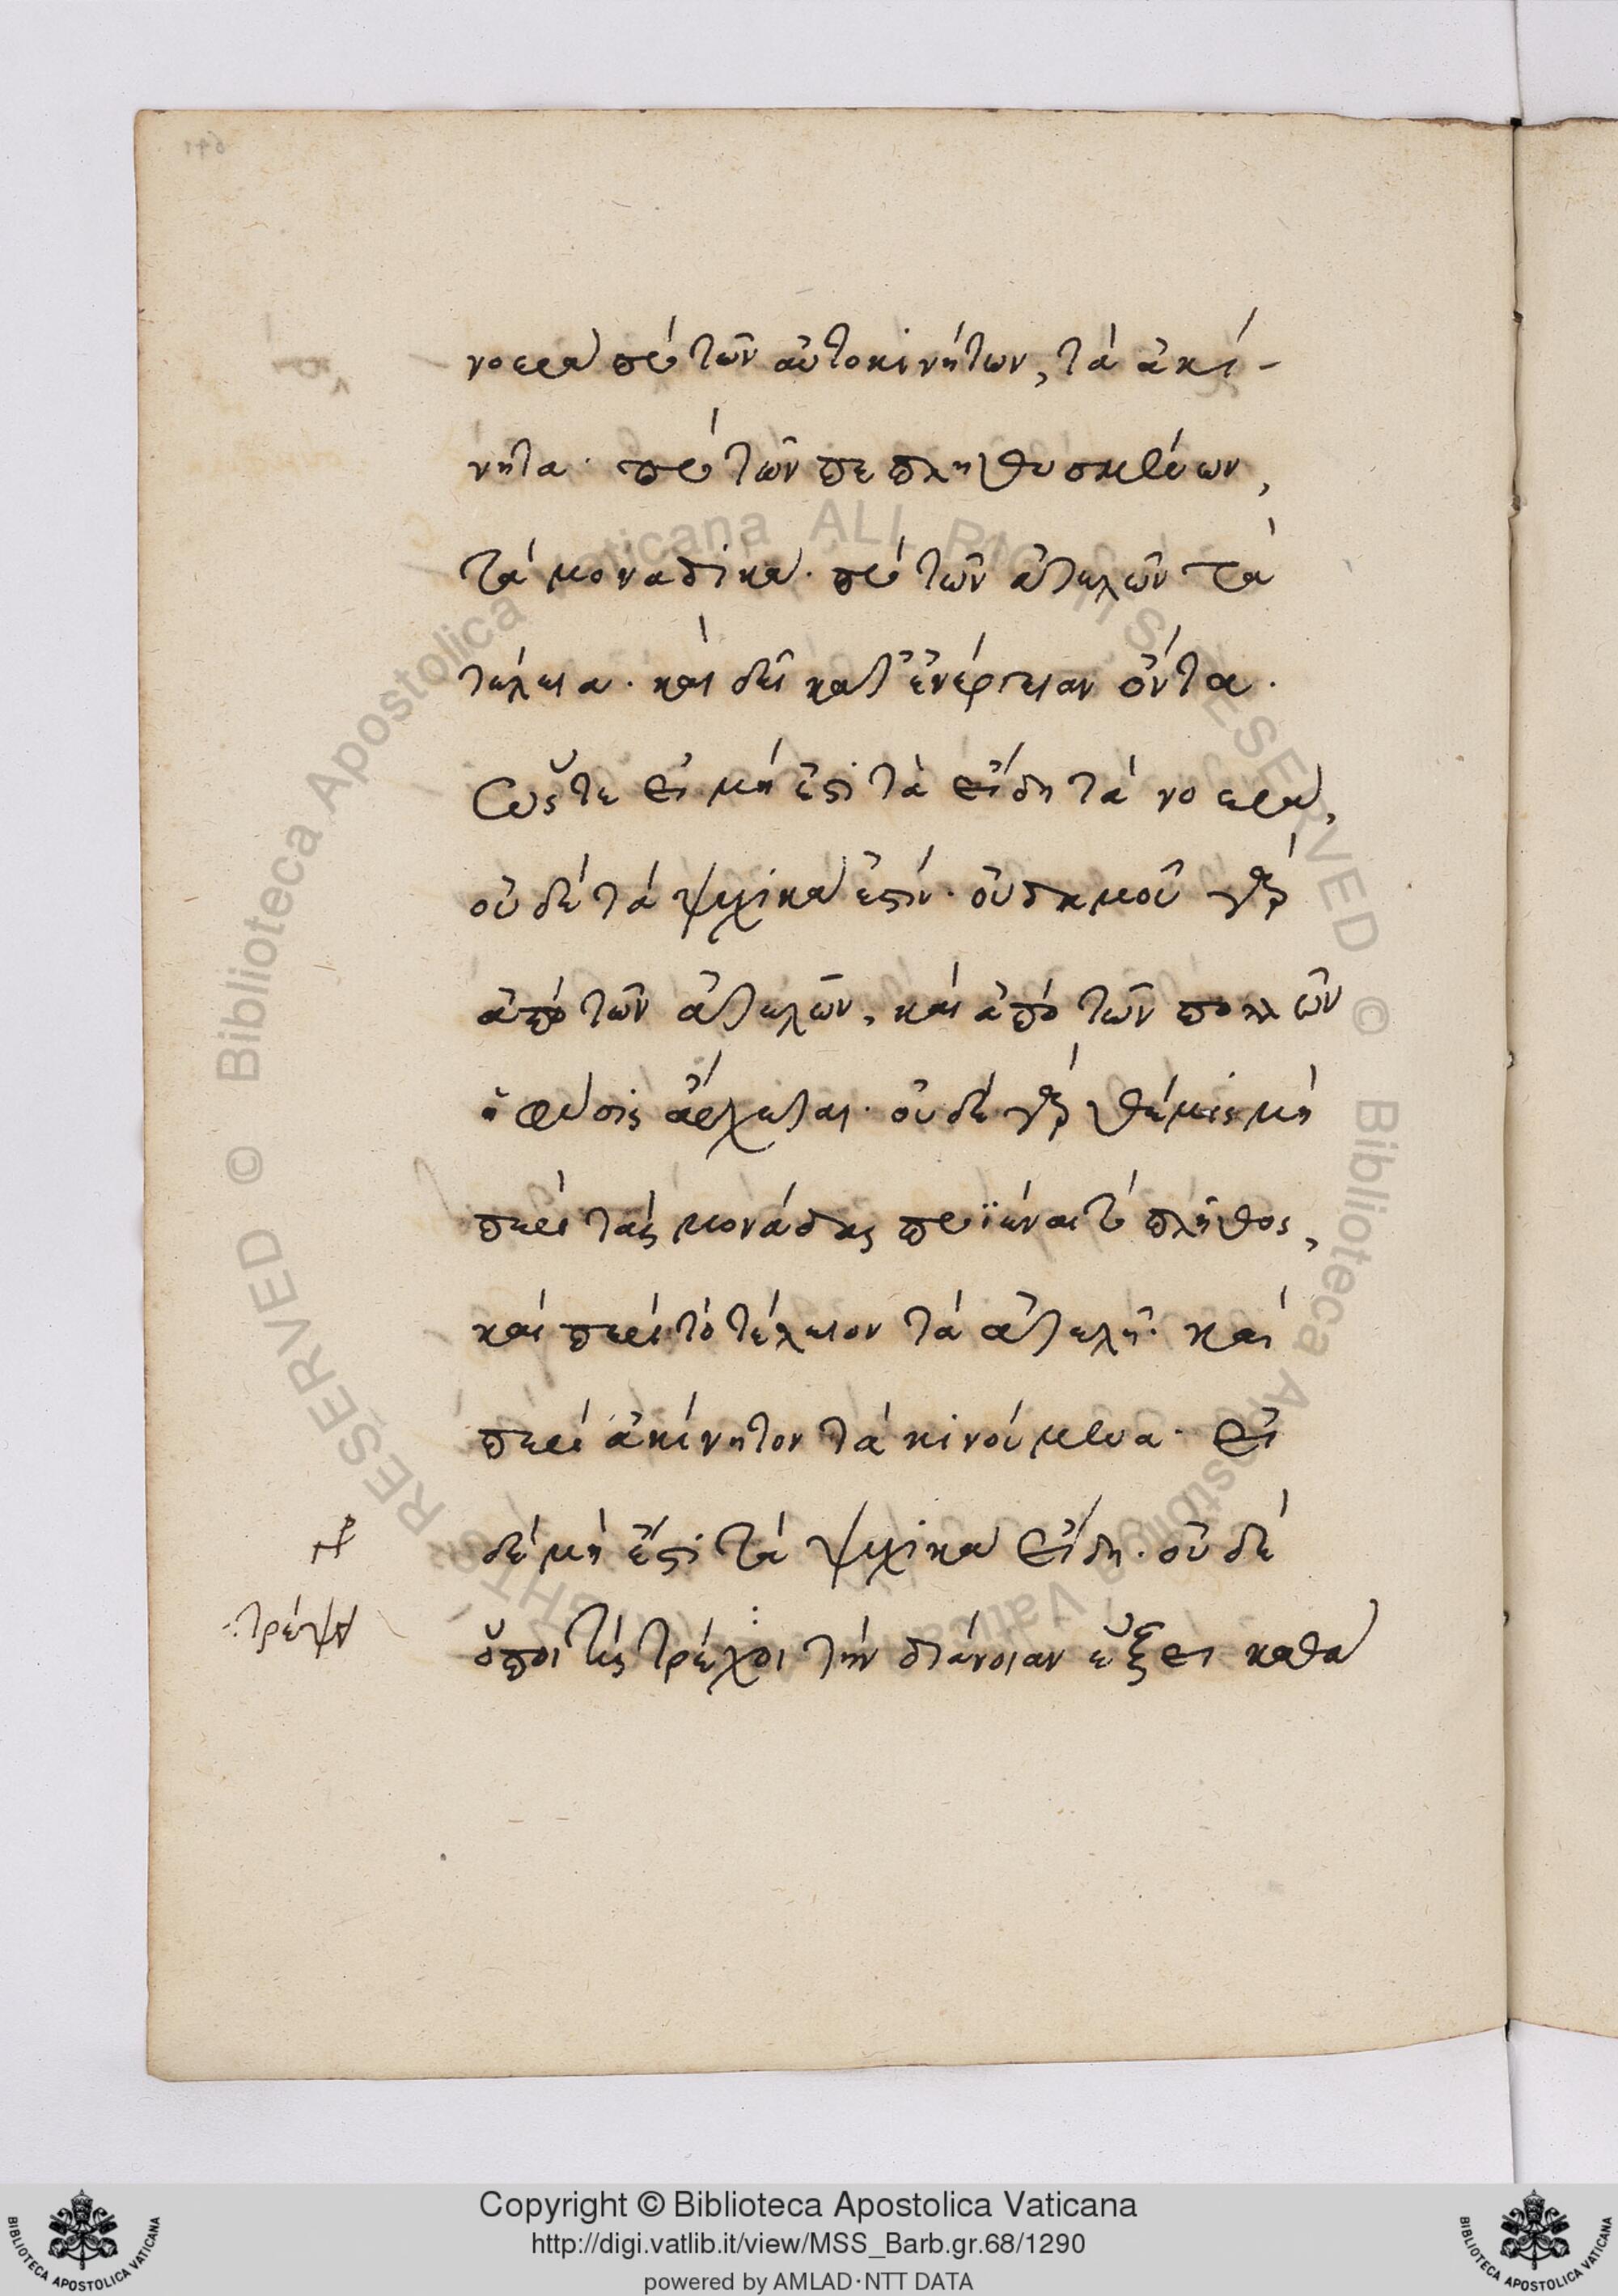 νοερὰ πρὸ τῶν αὐτοκινήτων, τὰ ἀκί-
νητα· πρὸ τῶν πεπληθυσμένων,
τὰ μοναδικά· πρὸ τῶν ἀτελῶν τὰ
τέλεια· καὶ δεῖ κατ' ἐνέργειαν ὄντα·
ὥστε εἰ μὴ ἔστι τὰ εἴδη τὰ νοερά,
οὐδὲ τὰ ψυχικὰ ἔστιν· οὐδαμοῦ γὰρ
ἀπὸ τῶν ἀτελῶν, καὶ ἀπὸ τῶν πολλῶν
ἡ φύσις ἄρχεται· οὐδὲ γὰρ θέμις μὴ
περὶ τὰς μονάδας προϊέναι τὸ πλῆθος,
καὶ περὶ τὸ τέλειον τὰ ἀτελῆ· καὶ
περὶ ἀκίνητον τὰ κινούμενα· εἰ
δὲ μὴ ἔστι τὰ ψυχικὰ εἴδη· οὐδὲ
τρέψει
ὅποι τις τρέχοι τὴν διάνοιαν ἕξει καθὰ
Copyright © Biblioteca Apostolica Vaticana
http://digi.vatlib.it/view/MSS_Barb.gr.68/1290
powered by AMLAD·NTT DATA
BIBLIOTECA APOSTOLICA VATICANA
BIBLIOTECA APOSTOLICA VATICANA